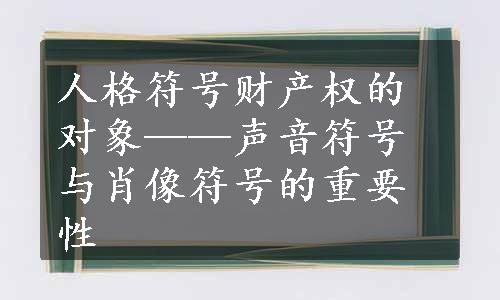 人格符号财产权的
对象——声音符号
与肖像符号的重要
性